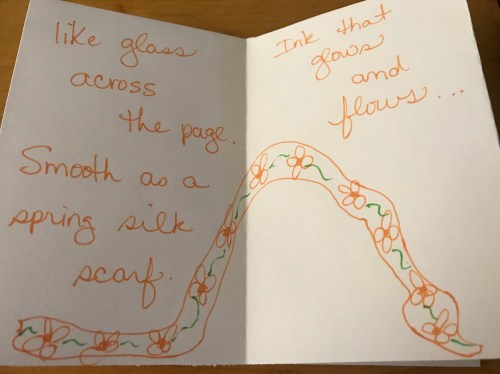 like glass
across
the page.
Smooth as a
spring silk
scarf.
Ink that
glows
and
flows...